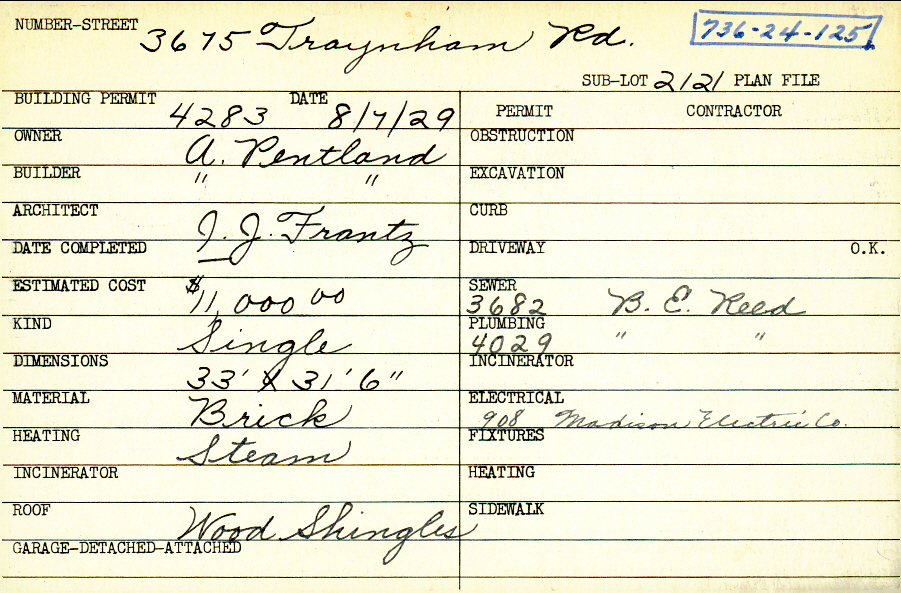 NUMBER-STREET 3675 Traynham Rd. 736-24-125
SUB-LOT 2121 PLAN FILE
BUILDING PERMIT 4283 DATE 8/7/29
PERMIT CONTRACTOR
OWNER A. Pentland
OBSTRUCTION
BUILDER " "
EXCAVATION
ARCHITECT I. J. Frantz
CURB
DATE COMPLETED
DRIVEWAY O.K.
ESTIMATED COST $11,000 00
SEWER 3682 B. E. Reed
KIND Single
PLUMBING 4029 " "
DIMENSIONS 33' X 31' 6"
INCINERATOR
MATERIAL Brick
ELECTRICAL 908 Madison Electric Co.
HEATING Steam
FIXTURES
INCINERATOR
HEATING
ROOF Wood Shingles
SIDEWALK
GARAGE-DETACHED-ATTACHED